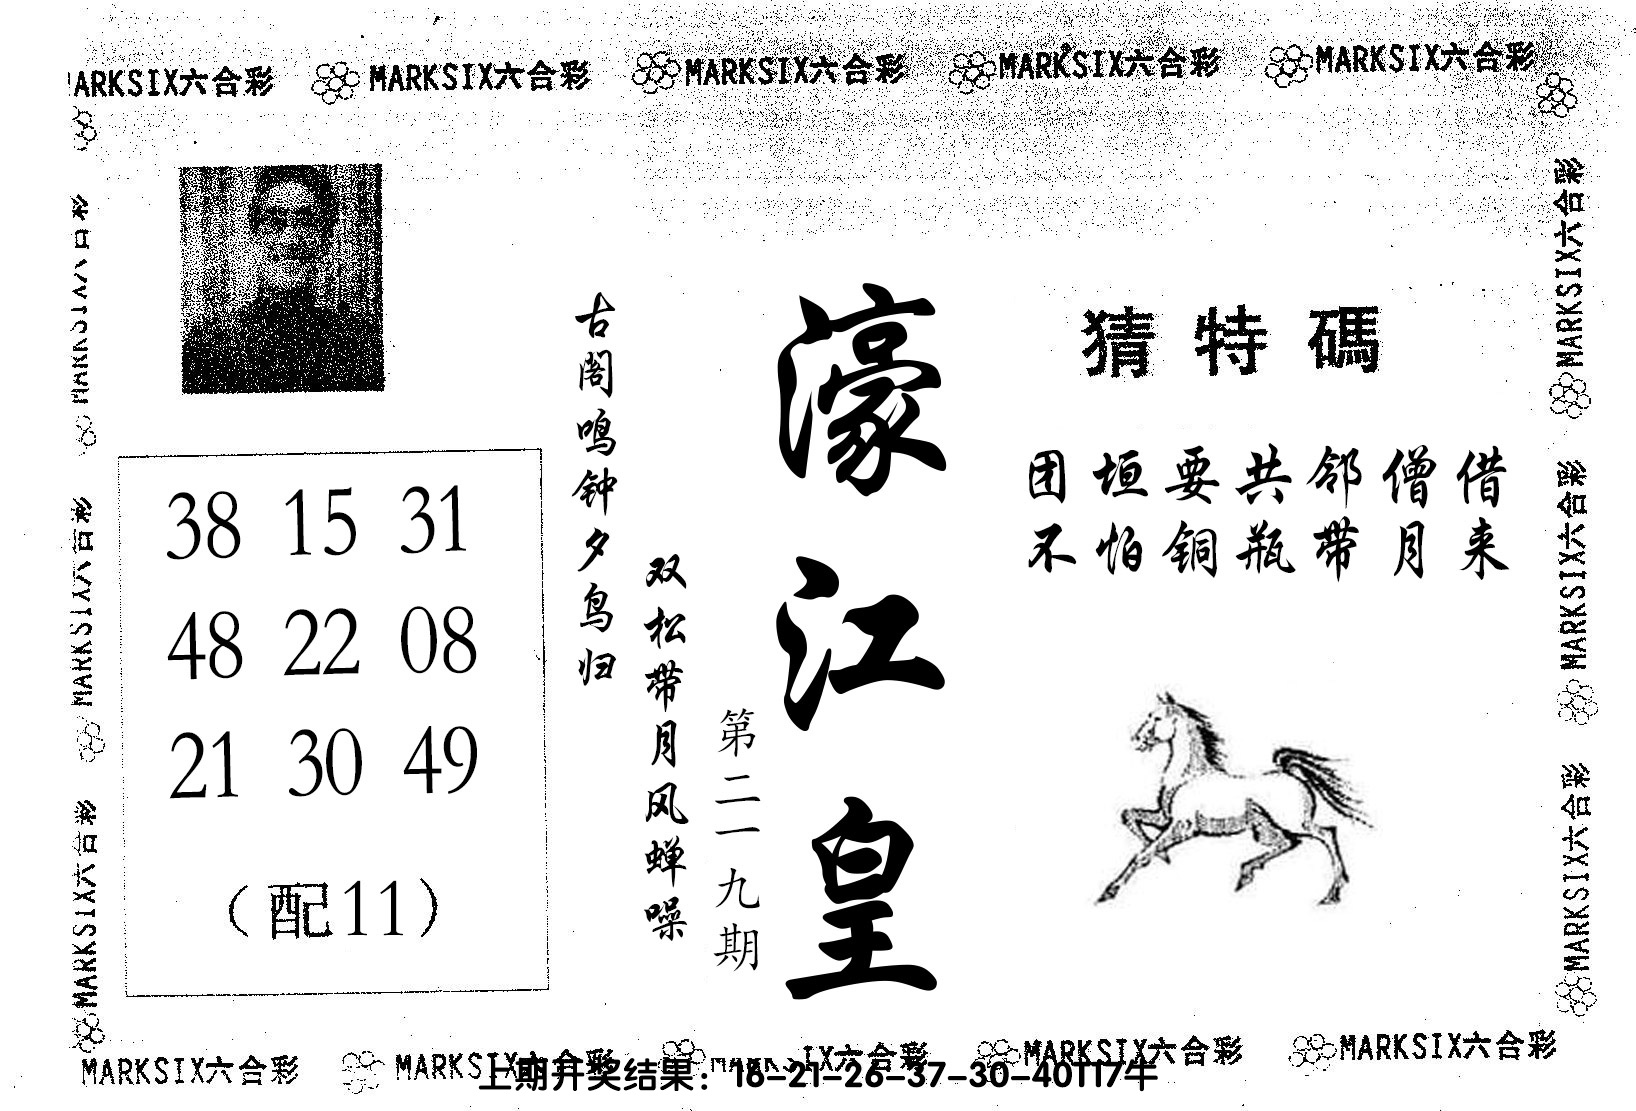 MARKSIX六合彩 MARKSIX六合彩 MARKSIX六合彩 MARKSIX六合彩
古阁鸣钟夕鸟归
双松带月风蝉噪
第二一九期
濠江皇
猜特碼
团垣要共邻僧借
不怕铜瓶带月来
38 15 31
48 22 08
21 30 49
（配11）
MARKSIX六合彩
MARKSIX六合彩
MARKSIX六合彩
MARKSIX六合彩
MARKSIX六合彩
MARKSIX六合彩 MARKSIX六合彩 MARKSIX六合彩 MARKSIX六合彩
上期开奖结果：18-21-26-37-30-40T17牛